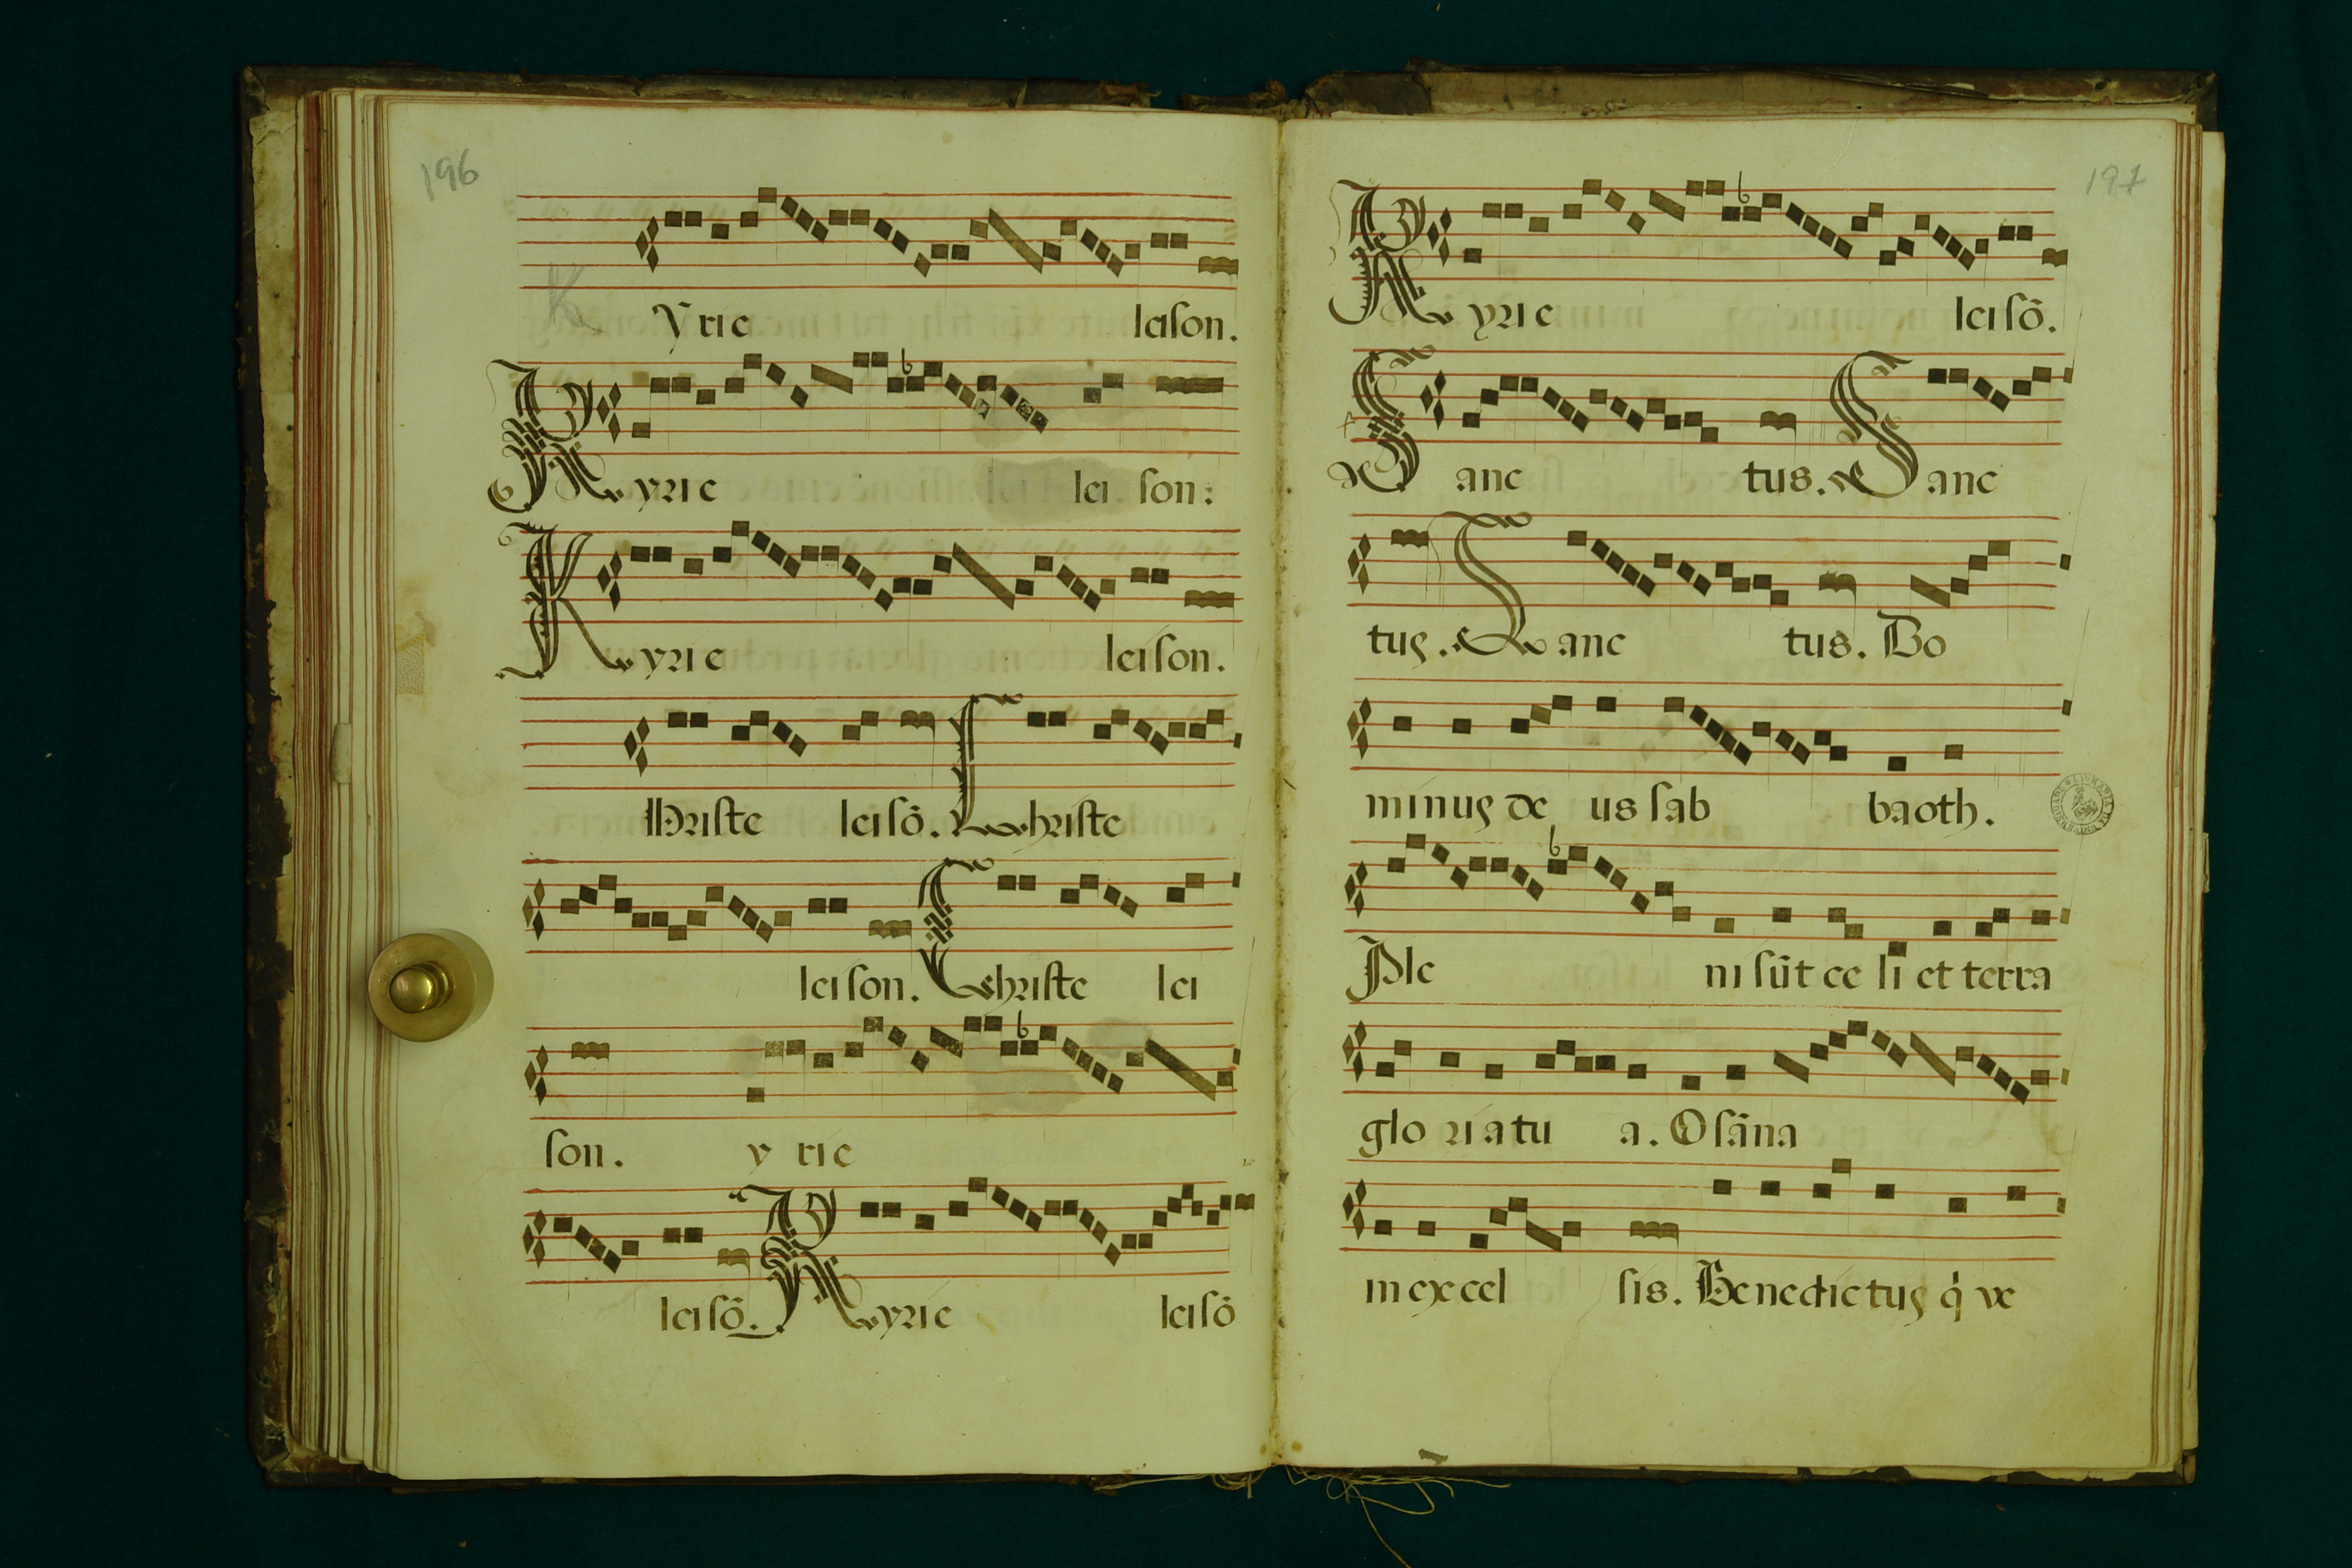 196
Yrie leison.
Kyrie lei son:
Kyrie leison.
Hriste leisō. Christe
leison. Christe lei
son. y rie
leisō. Kyrie leisō
197
Kyrie leisō.
Sanc tus. Sanc
tus. Sanc tus. Do
minus de us sab baoth.
Ple ni sūt ce li et terra
glo ria tu a. Osāna
in excel sis. Benedictus q̇ ve